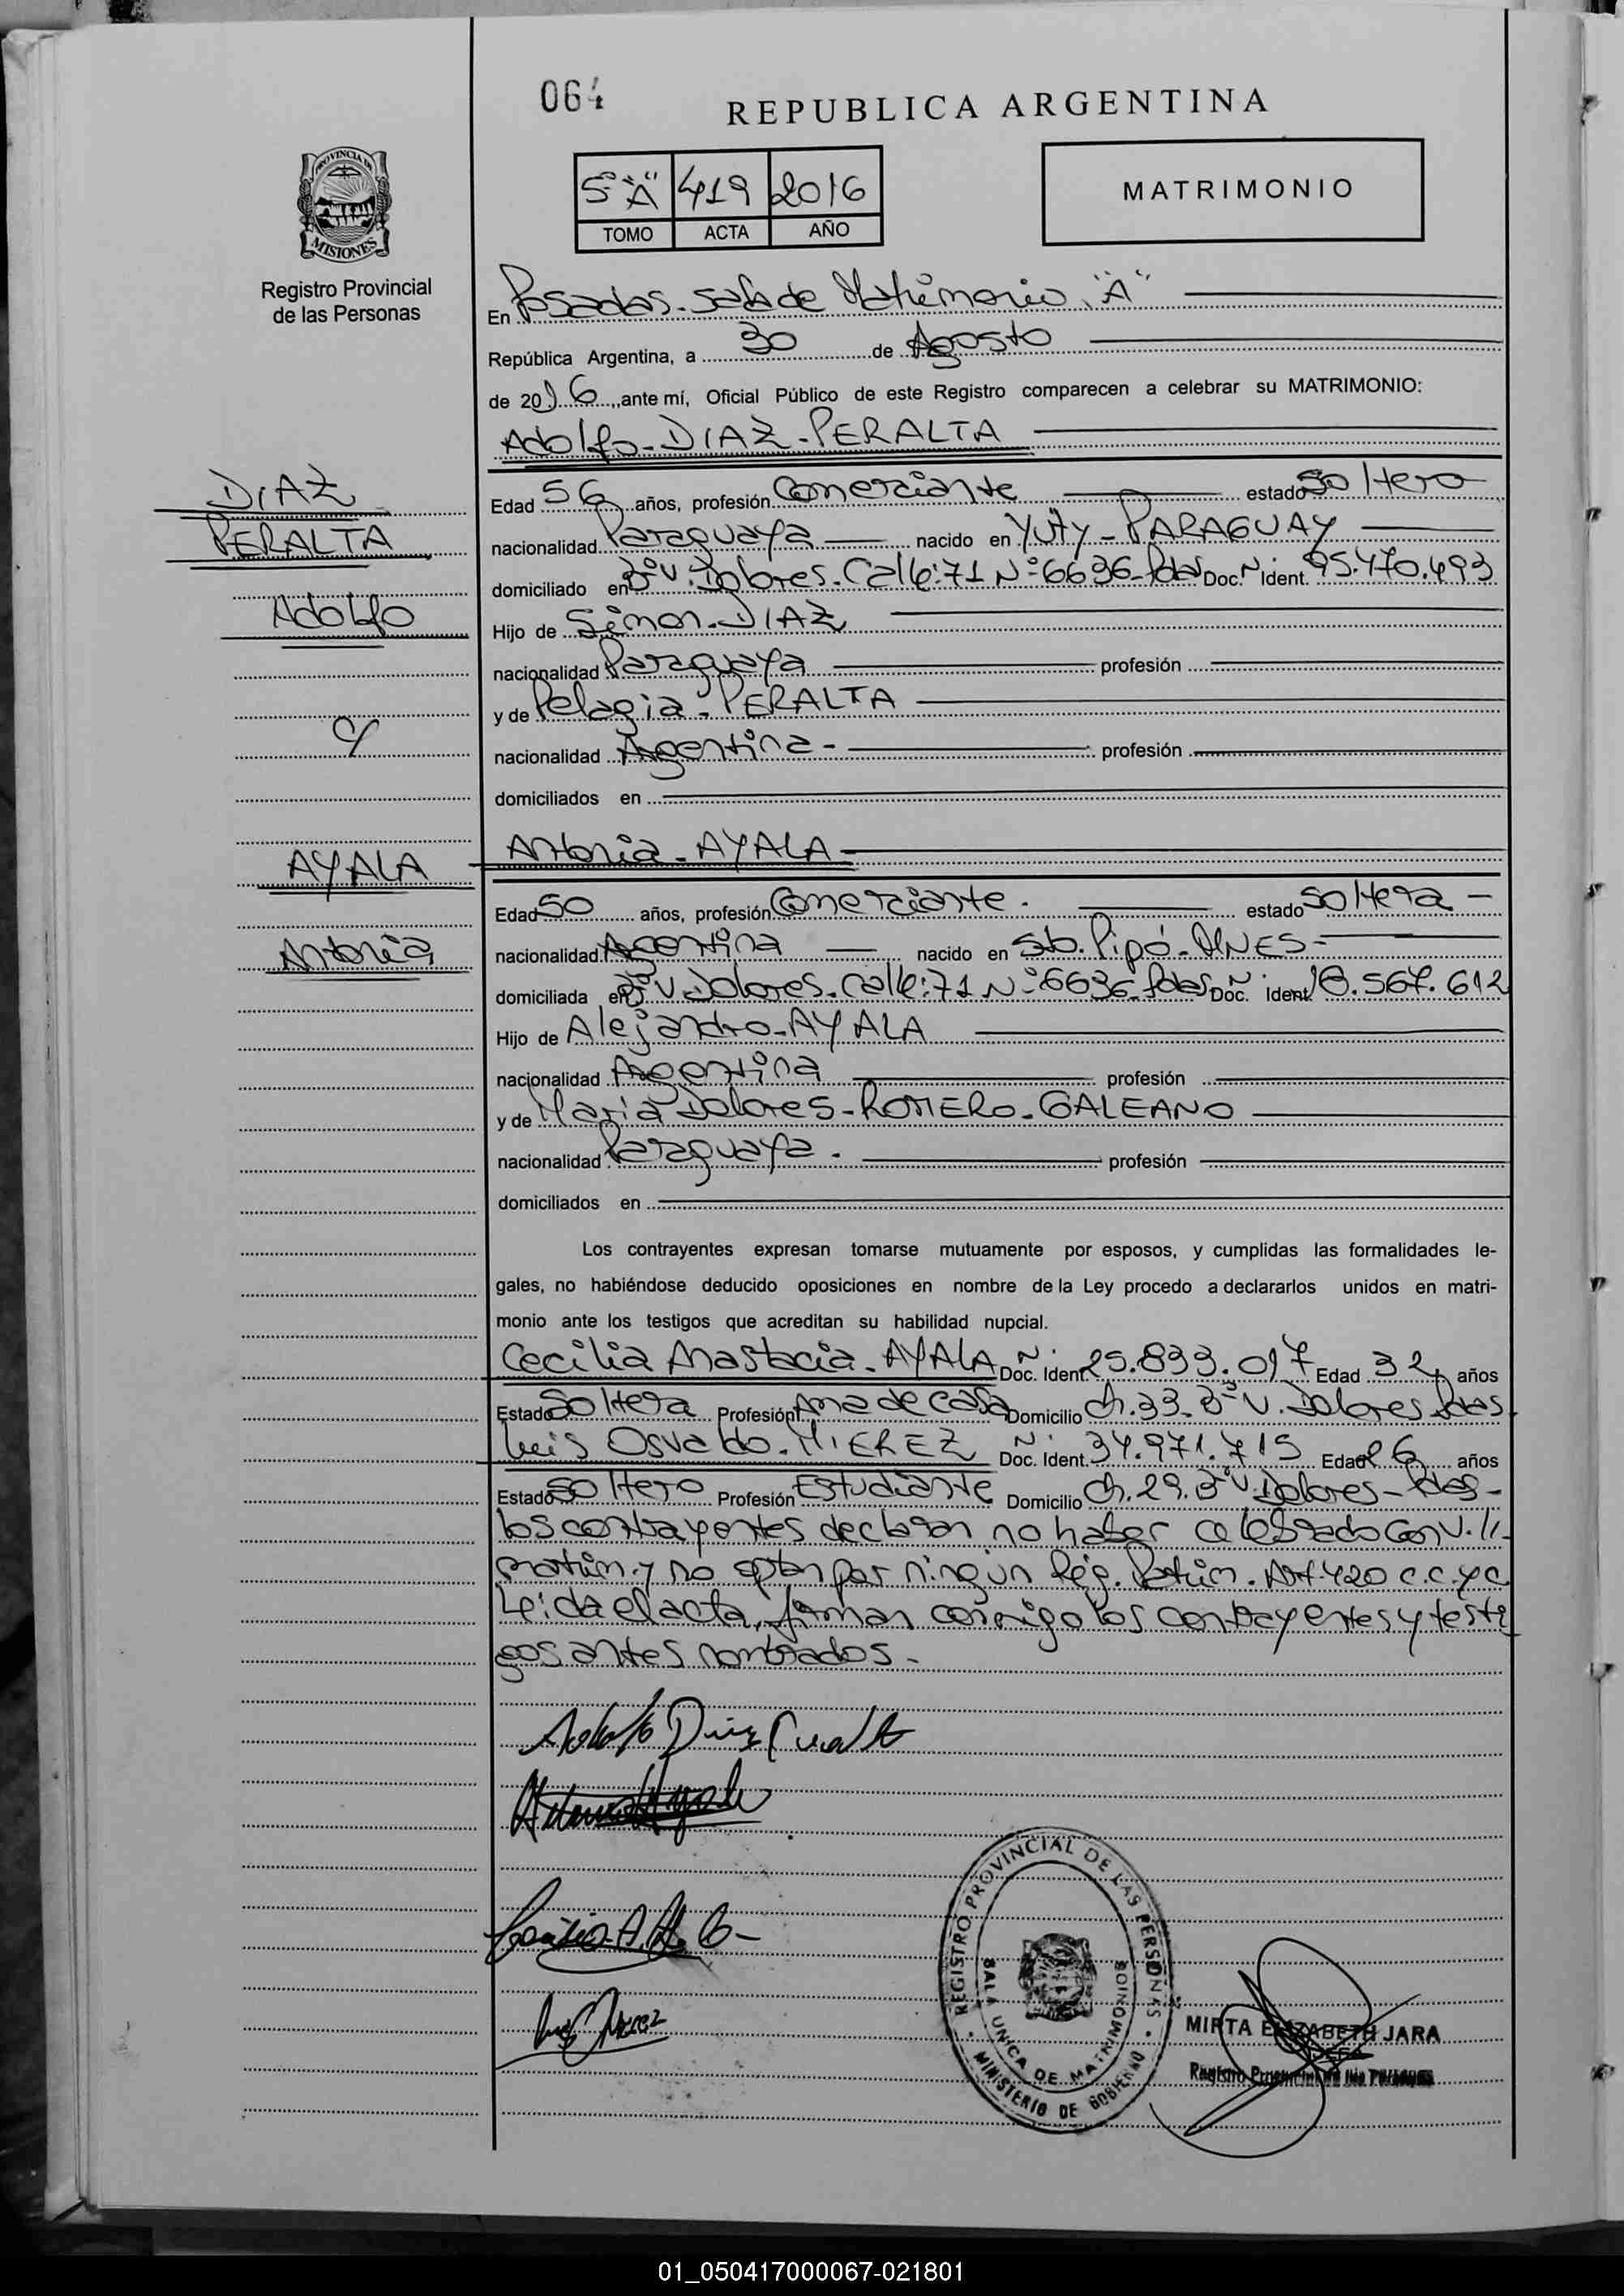 064
REPUBLICA ARGENTINA
PROVINCIA DE
MISIONES
Registro Provincial
de las Personas
5° "A" 419 2016
TOMO ACTA AÑO
MATRIMONIO
En Posadas. Sala de Matrimonio "A"
República Argentina, a 30 de Agosto
de 2016, ante mí, Oficial Público de este Registro comparecen a celebrar su MATRIMONIO:
Adolfo - DIAZ - PERALTA
DIAZ
PERALTA
Adolfo
c/
AYALA
Antonia
Edad 56 años, profesión Comerciante estado Soltero
nacionalidad Paraguaya nacido en YUTY - PARAGUAY
domiciliado en B° V. Dolores. Calle: 71 N° 6636 - Pdas Doc. N. Ident. 95.470.493
Hijo de Simon - DIAZ
nacionalidad Paraguaya profesión
y de Pelagia - PERALTA
nacionalidad Argentina - profesión
domiciliados en
Antonia - AYALA -
Edad 50 años, profesión Comerciante . estado Soltera -
nacionalidad Argentina nacido en Sto. Pipó - MNES -
domiciliada en B° V. Dolores. Calle: 71 N° 6636 - Pdas Doc. N. Ident. 18.567.612
Hijo de Alejandro - AYALA
nacionalidad Argentina profesión
y de Maria Dolores - ROMERO - GALEANO
nacionalidad Paraguaya . profesión
domiciliados en
Los contrayentes expresan tomarse mutuamente por esposos, y cumplidas las formalidades le-
gales, no habiéndose deducido oposiciones en nombre de la Ley procedo a declararlos unidos en matri-
monio ante los testigos que acreditan su habilidad nupcial.
Cecilia Anastacia - AYALA Doc. N. Ident. 25.833.017 Edad 32 años
Estado Soltera Profesión Ama de Casa Domicilio Ch. 33. B° V. Dolores Pdas
Luis Osvaldo - MIEREZ Doc. N. Ident. 34.971.715 Edad 26 años
Estado Soltero Profesión Estudiante Domicilio Ch. 29. B° V. Dolores - Pdas -
los contrayentes declaran no haber celebrado Conv.
matrim. y no optan por ningún Rég. Patrim. Art. 420 C.C.y C.
Leida el acta, firman conmigo los contrayentes y testi
gos antes nombrados -
Adolfo Diaz Peralta
Antonia Ayala
REGISTRO PROVINCIAL DE LAS PERSONAS
SALA UNICA DE MATRIMONIOS
MINISTERIO DE GOBIERNO
MIRTA ELIZABETH JARA
JEFA
Registro Provincial de las Personas
01_050417000067-021801